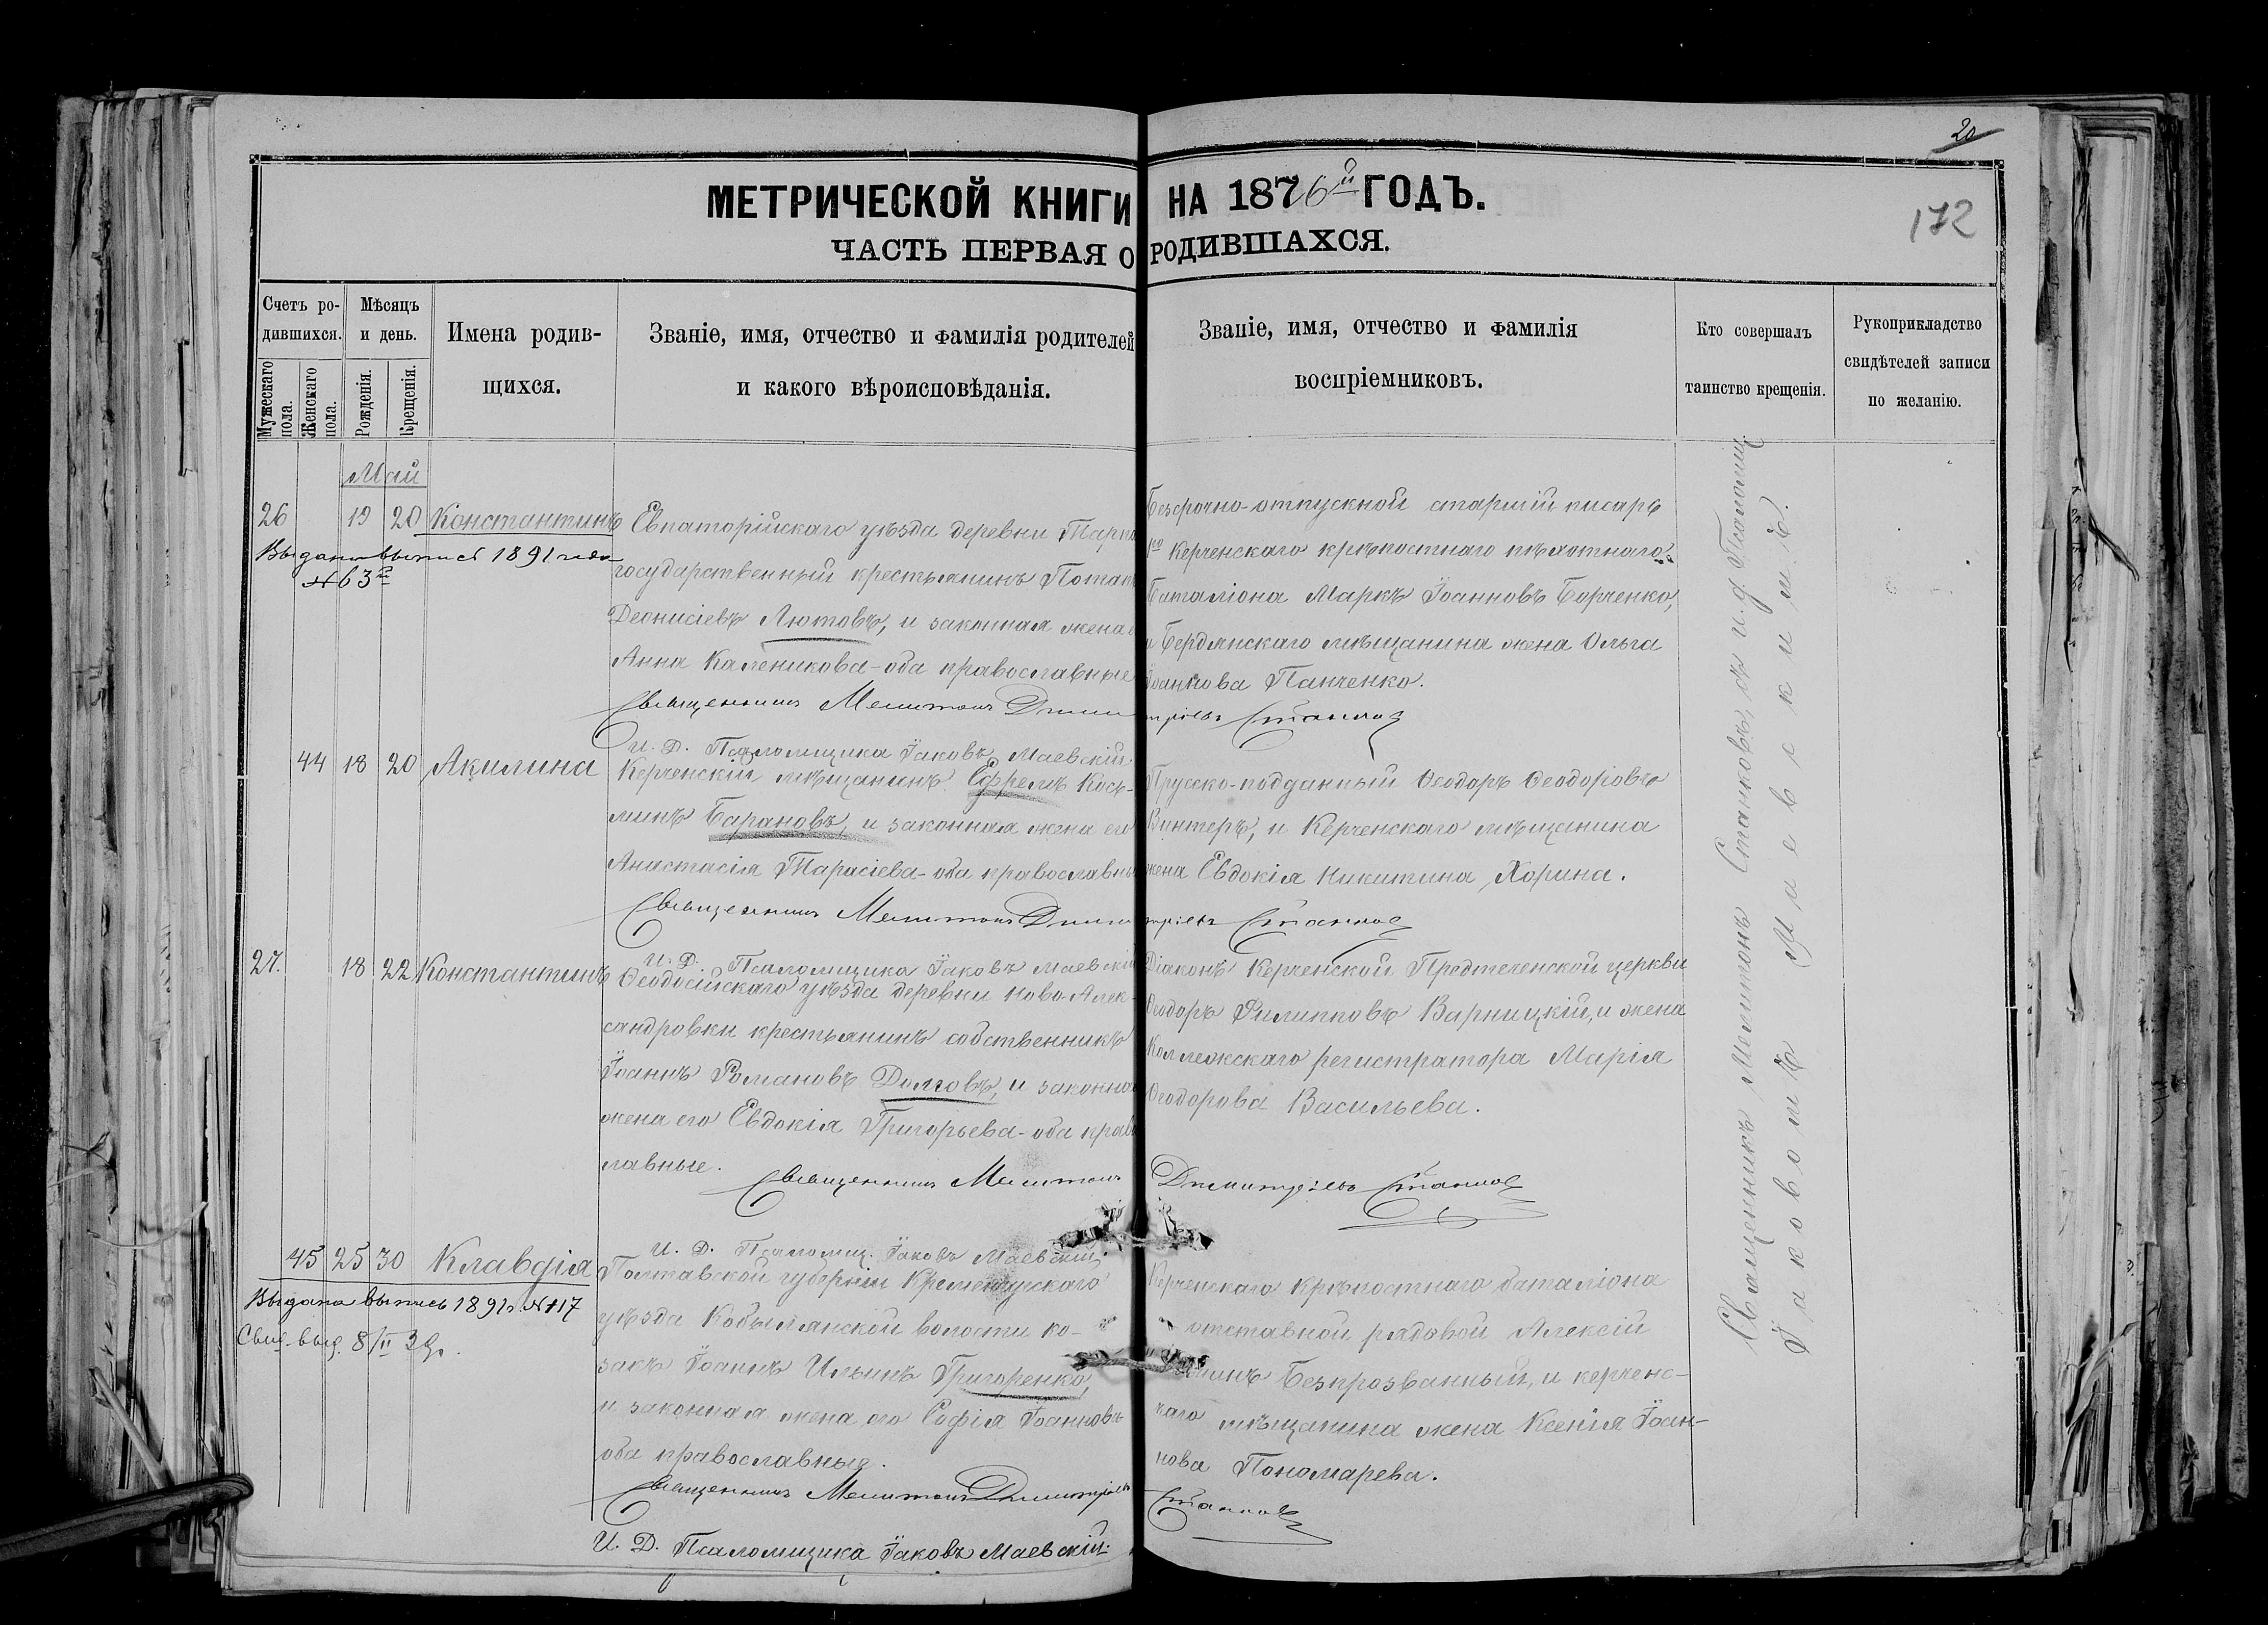 20
МЕТРИЧЕСКОЙ КНИГИ НА 1876й ГОДЪ.
172
ЧАСТЬ ПЕРВАЯ О РОДИВШАХСЯ.
Счетъ ро-
дившихся.
Мужескаго пола.
Женскаго пола.
Мѣсяцъ
и день.
Рожденія.
Крещенія.
Имена родив-
щихся.
Званіе, имя, отчество и фамилія родителей
и какого вѣроисповѣданія.
Званіе, имя, отчество и фамилія
воспріемниковъ.
Кто совершалъ
таинство крещенія.
Рукоприкладство
свидѣтелей записи
по желанію.
Май
26 19 20 Константинъ
Выдана выпись 1891 года
№ 63
Евпаторійскаго уѣзда деревни
государственный крестьянинъ
Деонисіевъ Лютовъ, и законная жена
Анна Каленикова - оба православные
Священникъ Мелитонъ Димитріевъ Станковъ
И. Д. Псаломщика Іаковъ Маевскій.
Безсрочно-отпускной старшій писарь
1го Керченскаго крѣпостнаго пѣхотнаго
баталіона Маркъ Іоанновъ Борченко,
и Бердянскаго мѣщанина жена Ольга
Іоаннова Панченко.
44 18 20 Акилина
Керченскій мѣщанинъ Ефремъ Кось-
минъ Барановъ, и законная жена его
Анастасія Тарасіева - оба православны
Священникъ Мелитонъ Димитріевъ Станковъ
И. Д. Псаломщика Іаковъ Маевскій
Прусско-подданный Ѳеодоръ Ѳеодоровъ
Винтеръ, и Керченскаго мѣщанина
жена Евдокія Никитина Хорина.
27. 18 22 Константинъ
Ѳеодосійскаго уѣзда деревни Ново-Алек-
сандровки крестьянинъ собственникъ
Іоаннъ Романовъ Долговъ, и законная
жена его Евдокія Григорьева - оба право
лавные.
Священникъ Мелитонъ Димитріевъ Станковъ
И. Д. Псаломщ. Іаковъ Маевскій.
Діаконъ Керченской Предтеченской церкви
Ѳеодоръ Филипповъ Варницкій, и жена
Коллежскаго регистратора Марія
Ѳеодорова Васильева.
45 25 30 Клавдія
Выдана выпись 1891г. № 117
Свид. выд. 8/II 3
Полтавской губерніи Кременчугскаго
уѣзда Кобылянской волости ко-
закъ Іоаннъ Ильинъ Григоренко,
и законная жена его Софія Іоаннова
оба православные.
Священникъ Мелитонъ Димитріевъ Станковъ
И. Д. Псаломщика Іаковъ Маевскій.
Керченскаго крѣпостнаго баталіона
отставной рядовой Алексій
Безпрозванный, и керченс-
каго мѣщанина жена Ксенія Іоан-
нова Пономарева.
Священникъ Мелитонъ Станковъ, съ и. д. Псаломщ.
Іаковомъ Маевскимъ.